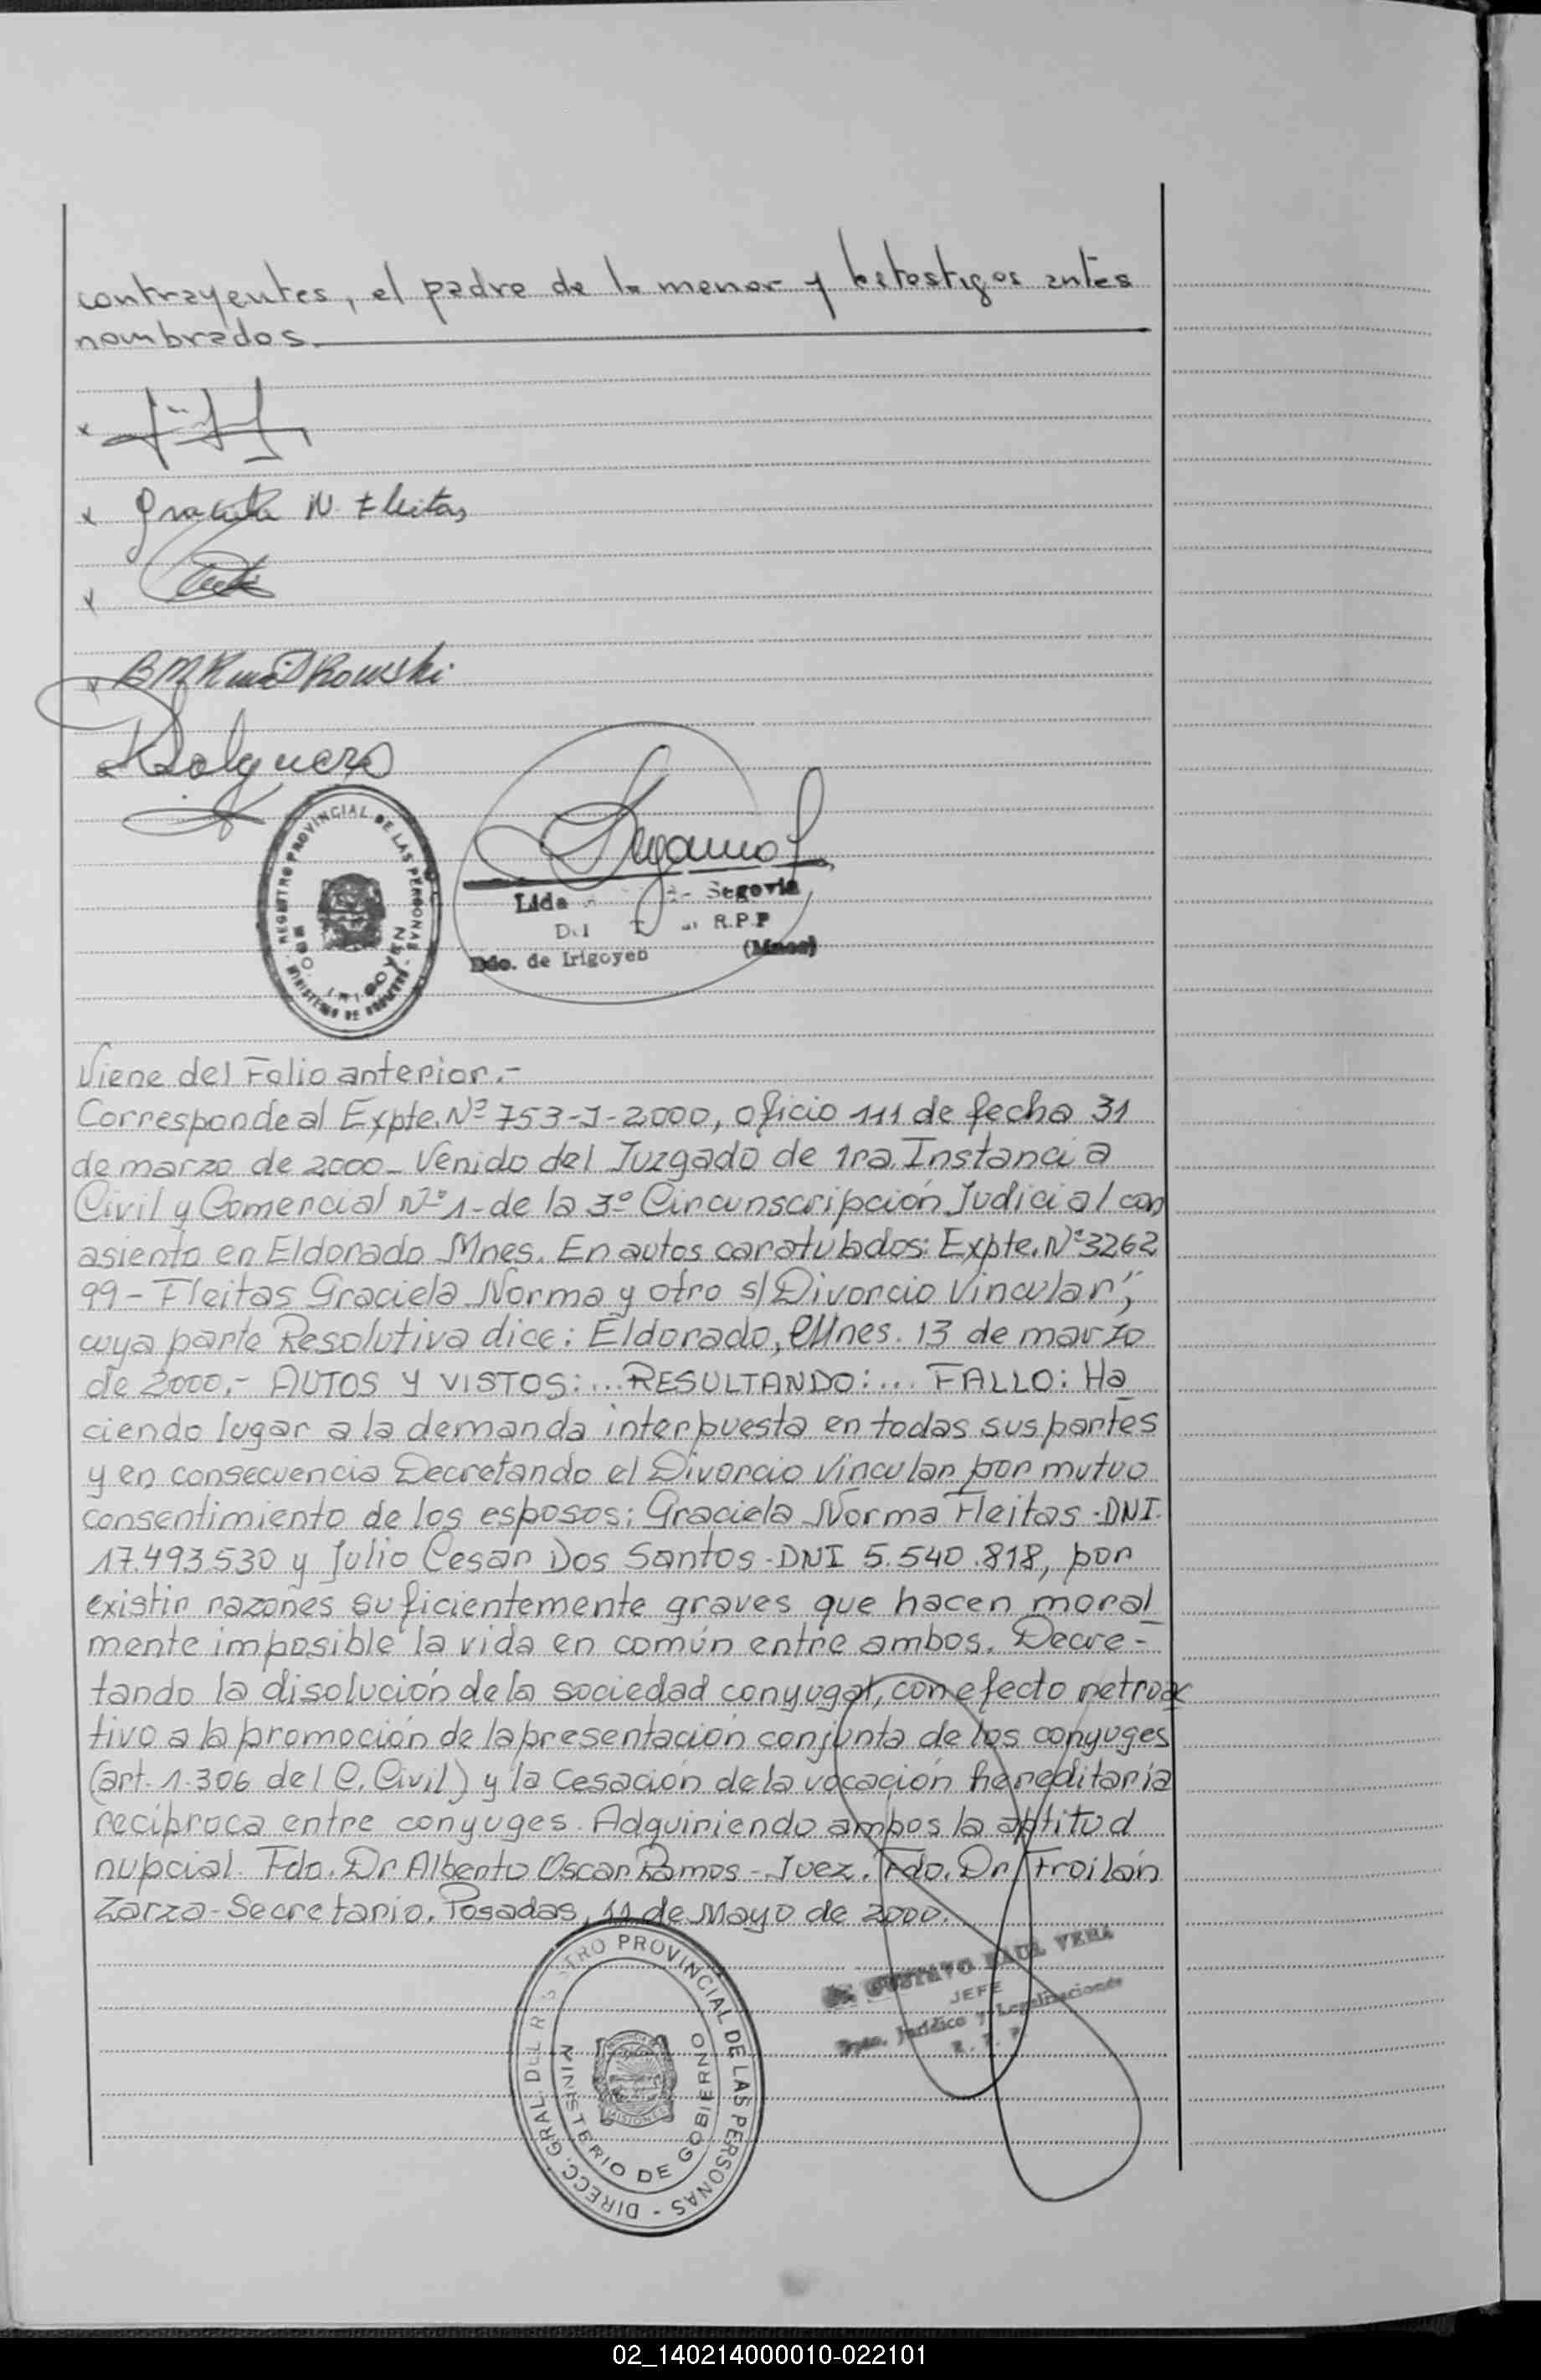 contrayentes, el padre de la menor y testigos antes
nombrados.
x
x Graciela N. Fleitas
x
x
REGISTRO PROVINCIAL DE LAS PERSONAS
MINISTERIO DE GOBIERNO
BDO. IRIGOYEN
Lida Segovia
Del R.P.P
Bdo. de Irigoyen (Mnes)
Viene del Folio anterior.-
Corresponde al Expte. Nº 753-J-2000, oficio 111 de fecha 31
de marzo de 2000- Venido del Juzgado de 1ra. Instancia
Civil y Comercial Nº 1- de la 3º Circunscripción Judicial con
asiento en Eldorado Mnes. En autos caratulados: Expte. Nº 3262
99- Fleitas Graciela Norma y otro s/ Divorcio Vincular",
cuya parte Resolutiva dice: Eldorado, Mnes. 13 de marzo
de 2000.- AUTOS Y VISTOS:... RESULTANDO:... FALLO: Ha_
ciendo lugar a la demanda interpuesta en todas sus partes
y en consecuencia Decretando el Divorcio Vincular por mutuo
consentimiento de los esposos: Graciela Norma Fleitas -DNI.
17.493.530 y Julio Cesar Dos Santos -DNI 5.540.818, por
existir razones suficientemente graves que hacen moral_
mente imposible la vida en común entre ambos. Decre-
tando la disolución de la sociedad conyugal, con efecto retroac
tivo a la promoción de la presentación conjunta de los conyuges
(art. 1.306 del C. Civil) y la cesación de la vocación hereditaria
recíproca entre conyuges. Adquiriendo ambos la aptitud
nupcial. Fdo. Dr. Alberto Oscar Ramos - Juez. Fdo. Dr. Froilán
Zarza - Secretario. Posadas, 11 de Mayo de 2000.
DIRECC. GRAL. DEL REGISTRO PROVINCIAL DE LAS PERSONAS -
MINISTERIO DE GOBIERNO
MISIONES
GUSTAVO RAUL VERA
JEFE
Dpto. Jurídico y Legalizaciones
R. P. P.
02_140214000010-022101